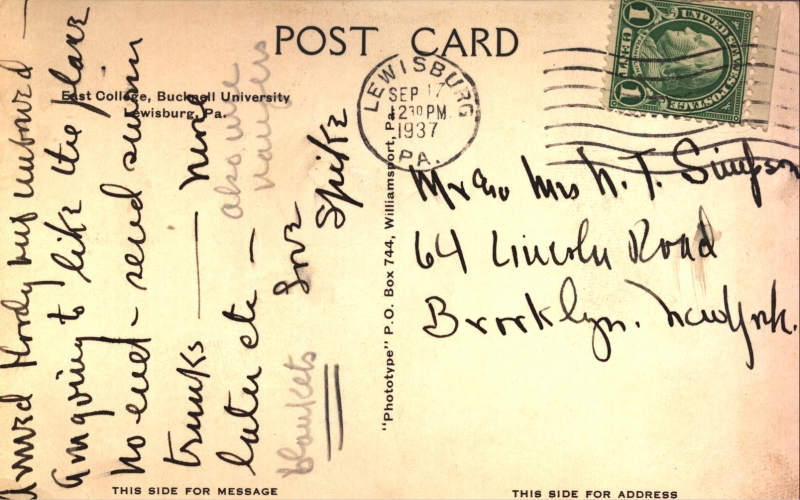 POST CARD
East College, Bucknell University
Lewisburg, Pa.
LEWISBURG
SEP 17
12 30 PM
1937
PA.
UNITED STATES POSTAGE
1 CENT 1
Am going to like the place
no end – send swim
trunks — more
later etc –
Love
Spike
also we
hangers
blankets
"Phototype" P.O. Box 744, Williamsport, Pa.
Mr and Mrs N. T. Simpson
64 Lincoln Road
Brooklyn. New York.
THIS SIDE FOR MESSAGE
THIS SIDE FOR ADDRESS